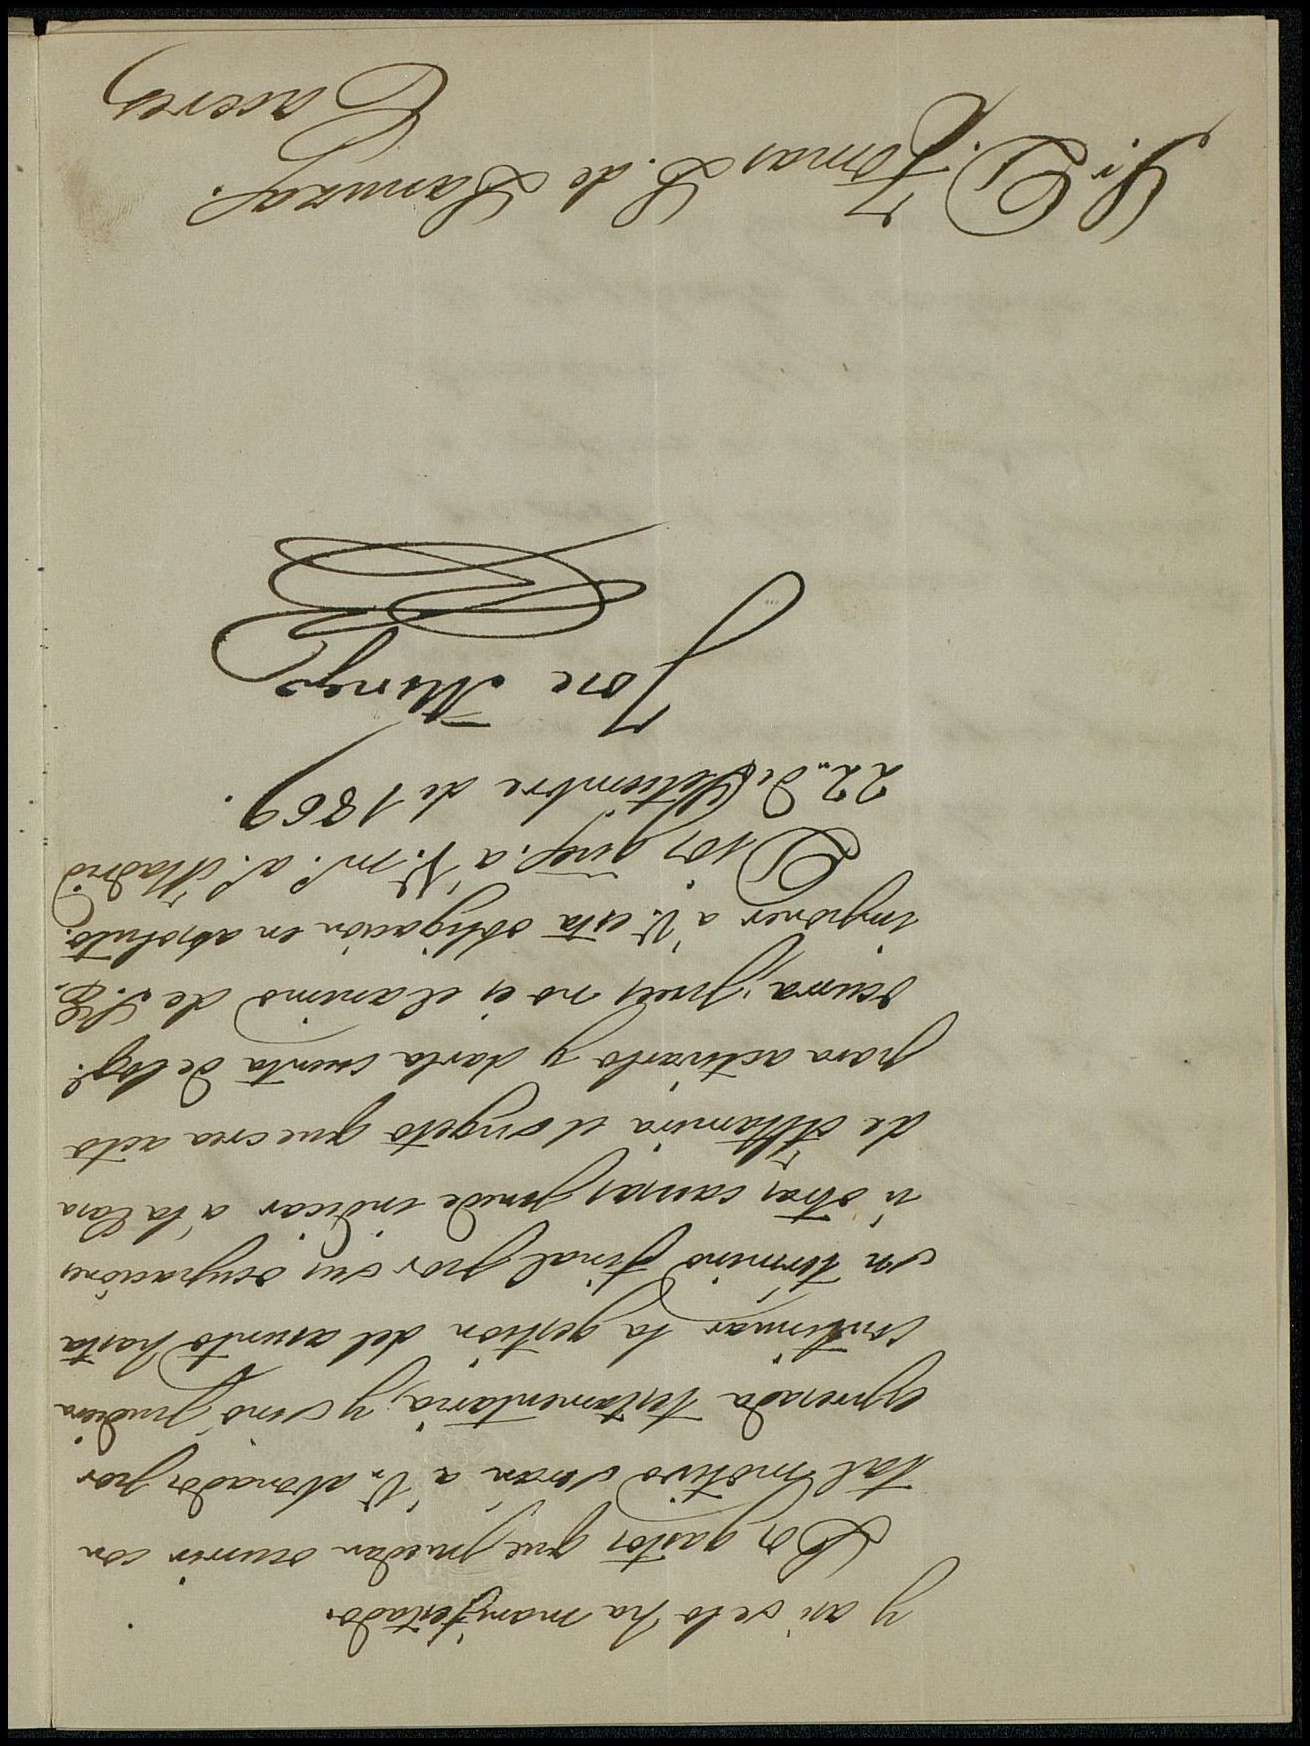 y asi se lo ha manifestado.
Los gastos que puedan ocurrir con
tal motivo seran á V. abonados por
espresada testamentaria, y sino pudiera
continuar la gestion del asunto hasta
su termino final por sus ocupaciones
ú otras causas puede indicar á la Casa
de Altamira el sugeto que crea acto
para activarlo y darla cuenta de lo q.e
ocurra, pues no es el animo de S.E.
imponer á V. esta obligacion en absoluto.
Dios gue. a V. m.s a.s Madrid
22,, de Setiembre de 1869.
Jose
Sr. D. Tomas L. de Lanuza.
Caceres